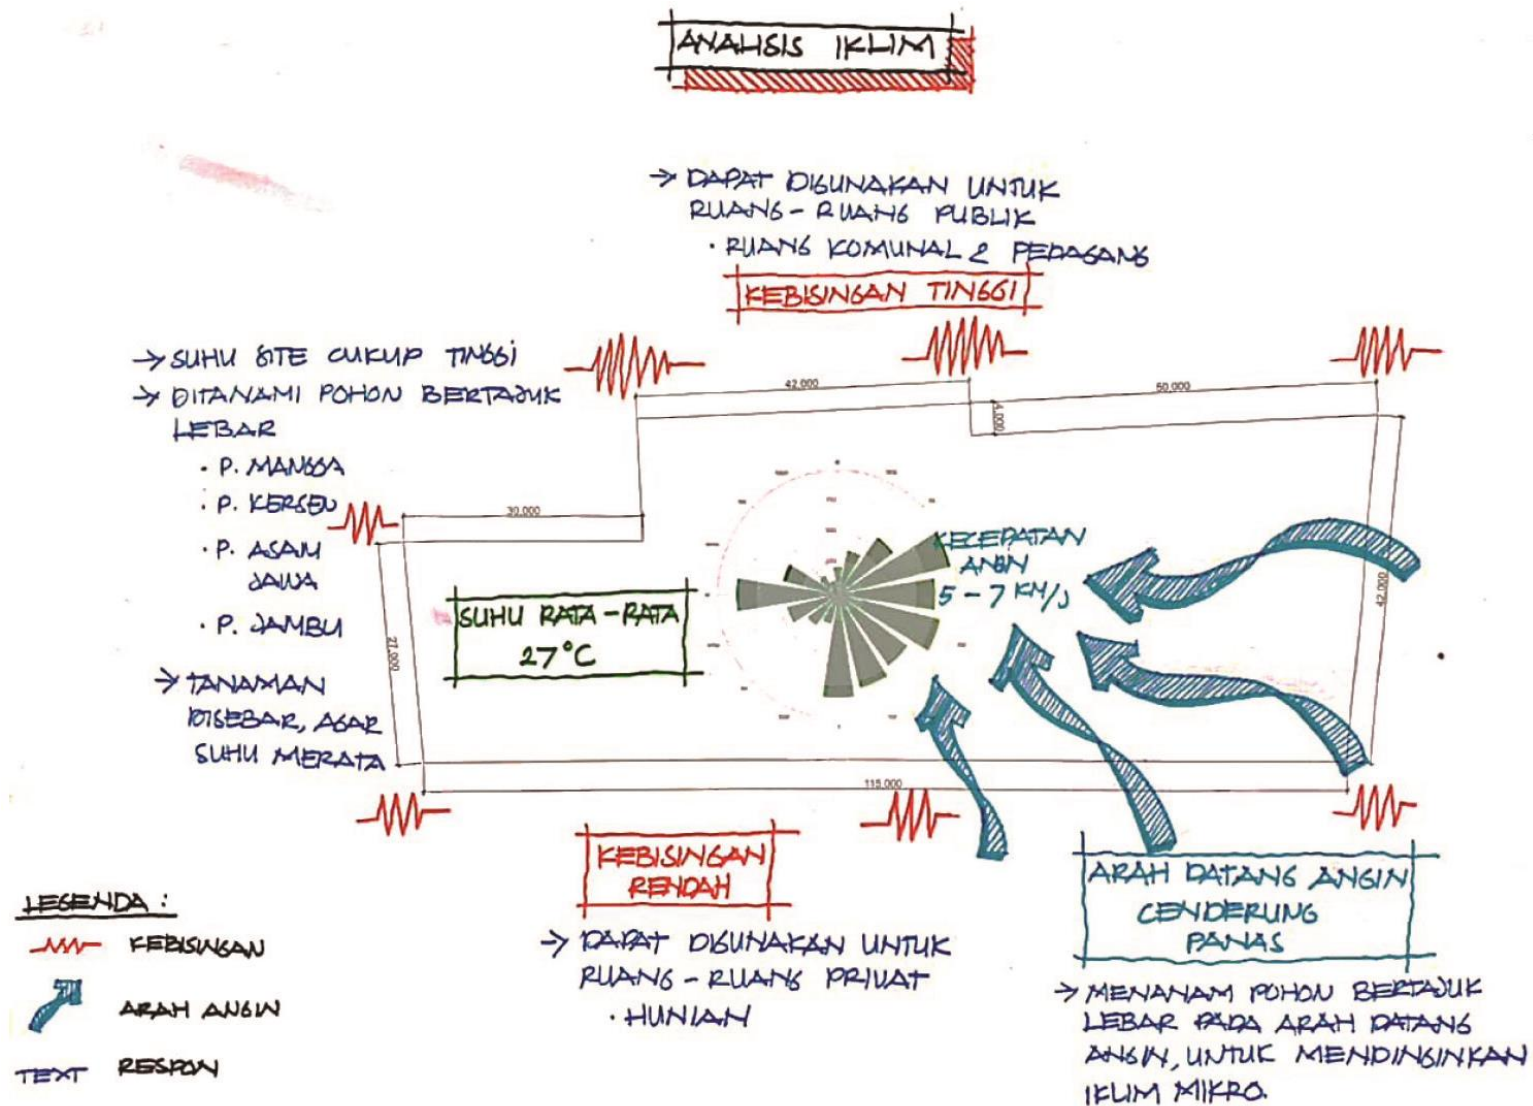 ANALISIS IKLIM
→ DAPAT DIGUNAKAN UNTUK
RUANG-RUANG PUBLIK
· RUANG KOMUNAL & PEDAGANG
KEBISINGAN TINGGI
→ SUHU SITE CUKUP TINGGI
→ DITANAMI POHON BERTAJUK
LEBAR
· P. MANGGA
· P. KERSEN
· P. ASAM
JAWA
· P. JAMBU
→ TANAMAN
DISEBAR, AGAR
SUHU MERATA
42.000
50.000
4.000
30.000
27.000
42.000
115.000
SUHU RATA-RATA
27°C
KECEPATAN
ANGIN
5-7 KM/J
KEBISINGAN
RENDAH
→ DAPAT DIGUNAKAN UNTUK
RUANG-RUANG PRIVAT
· HUNIAN
ARAH DATANG ANGIN
CENDERUNG
PANAS
→ MENANAM POHON BERTAJUK
LEBAR PADA ARAH DATANG
ANGIN, UNTUK MENDINGINKAN
IKLIM MIKRO.
LEGENDA :
KEBISINGAN
ARAH ANGIN
TEXT RESPON